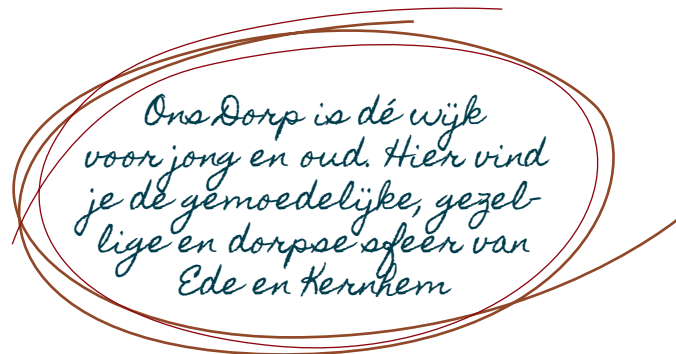 Ons Dorp is dé wijk
voor jong en oud. Hier vind
je de gemoedelijke, gezel-
lige en dorpse sfeer van
Ede en Kernhem